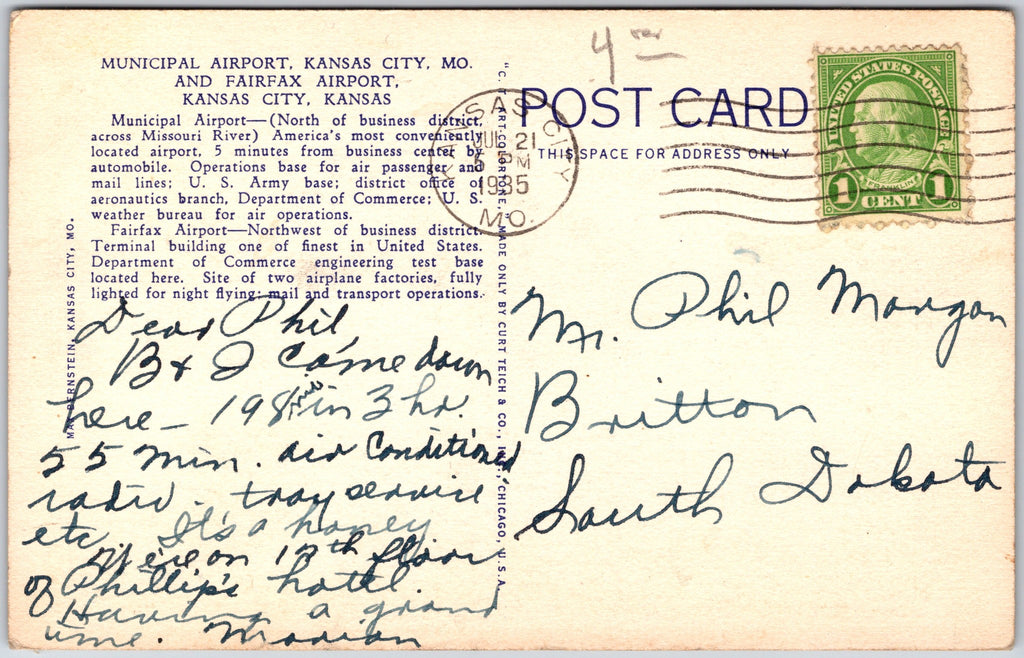 MUNICIPAL AIRPORT, KANSAS CITY, MO.
AND FAIRFAX AIRPORT,
KANSAS CITY, KANSAS
Municipal Airport—(North of business district,
across Missouri River) America's most conveniently
located airport, 5 minutes from business center by
automobile. Operations base for air passenger and
mail lines; U. S. Army base; district office of
aeronautics branch, Department of Commerce; U. S.
weather bureau for air operations.
Fairfax Airport—Northwest of business district.
Terminal building one of finest in United States.
Department of Commerce engineering test base
located here. Site of two airplane factories, fully
lighted for night flying; mail and transport operations.
BERNSTEIN, KANSAS CITY, MO.
Dear Phil
B & I came down
here - 198 in 3 hr.
55 min. air Conditioned
radio. tray service
etc It's a honey
We're on 12th floor
of Phillip's hotel.
Having a grand
time. Marian
"C. T. ART-COLORTONE" MADE ONLY BY CURT TEICH & CO., INC., CHICAGO, U.S.A.
4
POST CARD
THIS SPACE FOR ADDRESS ONLY
KANSAS CITY
JUL 21
5 PM
1935
MO.
UNITED STATES POSTAGE
FRANKLIN
1 CENT 1
Mr. Phil Morgan
Britton
South Dakota